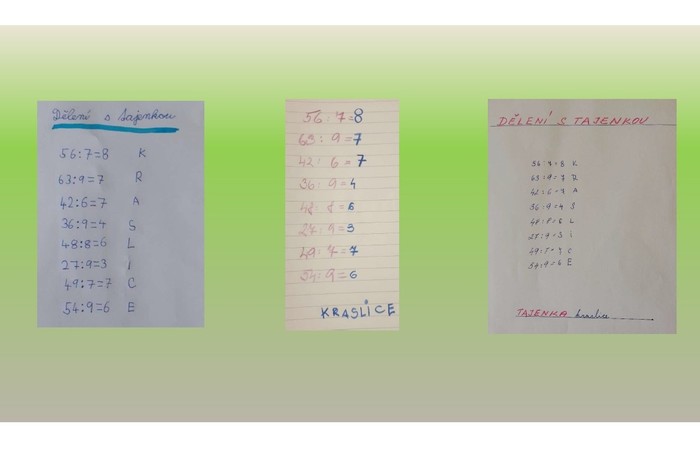 Dělení s tajenkou
56:7=8 K
63:9=7 R
42:6=7 A
36:9=4 S
48:8=6 L
27:9=3 I
49:7=7 C
54:9=6 E
56:7=8
63:9=7
42:6=7
36:9=4
48:8=6
27:9=3
49:7=7
54:9=6
KRASLICE
DĚLENÍ S TAJENKOU
56:7=8 K
63:9=7 R
42:6=7 A
36:9=4 S
48:8=6 L
27:9=3 I
49:7=7 C
54:9=6 E
TAJENKA kraslice